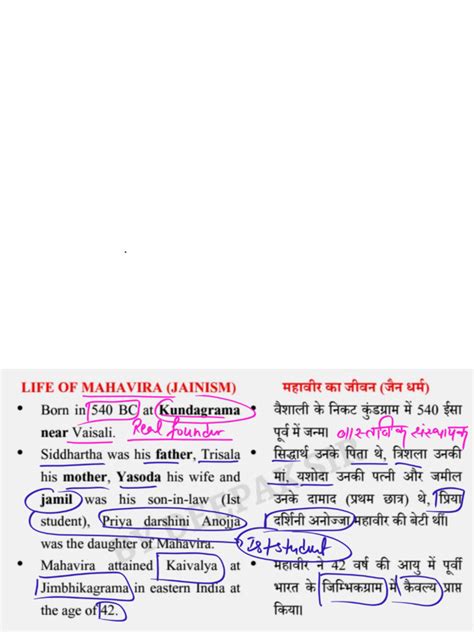 LIFE OF MAHAVIRA (JAINISM)
• Born in 540 BC at Kundagrama
near Vaisali. Real founder
• Siddhartha was his father, Trisala
his mother, Yasoda his wife and
jamil was his son-in-law (Ist
student), Priya darshini Anojja
was the daughter of Mahavira.
Ist student
• Mahavira attained Kaivalya at
Jimbhikagrama in eastern India at
the age of 42.
महावीर का जीवन (जैन धर्म)
• वैशाली के निकट कुंडग्राम में 540 ईसा
पूर्व में जन्म। वास्तविक संस्थापक
• सिद्धार्थ उनके पिता थे, त्रिशला उनकी
मां, यशोदा उनकी पत्नी और जमील
उनके दामाद (प्रथम छात्र) थे, प्रिया
दर्शिनी अनोज्जा महावीर की बेटी थीं।
• महावीर ने 42 वर्ष की आयु में पूर्वी
भारत के जिम्भिकग्राम में कैवल्य प्राप्त
किया।
BY DEEPAK SIR